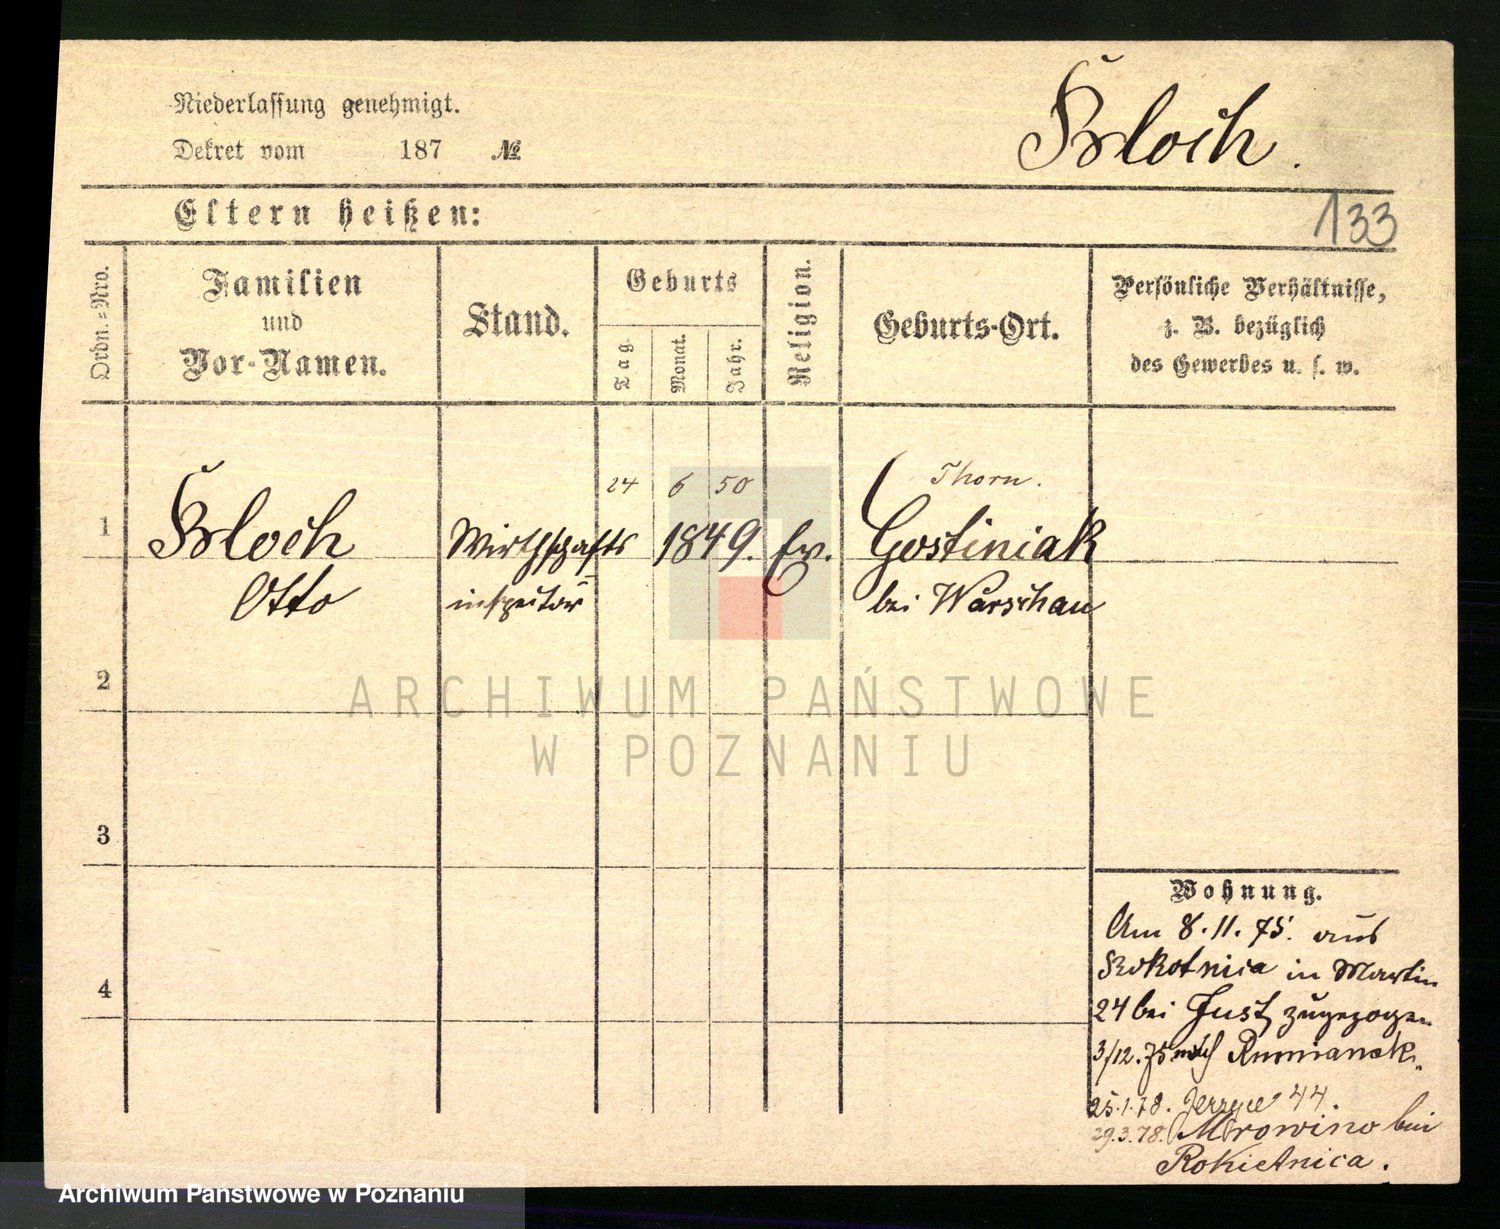 Niederlassung genehmigt.
Dekret vom 187 №
Bloch.
Eltern heißen:
133
Ordn.=Nro.
Familien
und
Vor-Namen.
Stand.
Geburts
Tag
Monat.
Jahr.
Religion.
Geburts-Ort.
Persönliche Verhältnisse,
z. B. bezüglich
des Gewerbes u. s. w.
24 6 50 Thorn.
1 Bloch Wirthschafts 1849. Ev. Gostiniak
Otto inspector bei Warschau
2
ARCHIWUM PAŃSTWOWE
W POZNANIU
3
Wohnung.
Am 8.11.75. aus
Rokotnica in Martin
4
24 bei Just zugezogen
3/12.75 nach Rumianek.
25.1.78. Jerzyce 44.
29.3.78. Mrowino bei
Rokietnica.
Archiwum Państwowe w Poznaniu